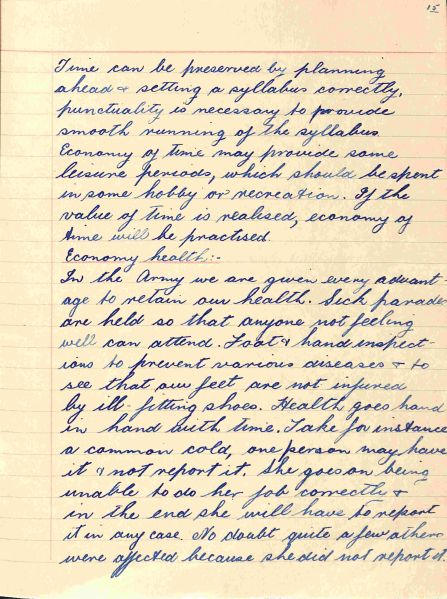 15
Time can be preserved by planning
ahead & setting a syllabus correctly,
punctuality is necessary to provide
smooth running of the syllabus
Economy of time may provide some
leisure periods, which should be spent
in some hobby or recreation. If the
value of time is realised, economy of
time will be practised.
Economy health:-
In the Army we are given every advant-
age to retain our health. Sick parades
are held so that anyone not feeling
well can attend. Foot & hand inspect-
ions to prevent various diseases & to
see that our feet are not injured
by ill-fitting shoes. Health goes hand
in hand with time. Take for instance
a common cold, one person may have
it & not report it. She goes on being
unable to do her job correctly &
in the end she will have to report
it in any case. No doubt quite a few others
were affected because she did not report it.